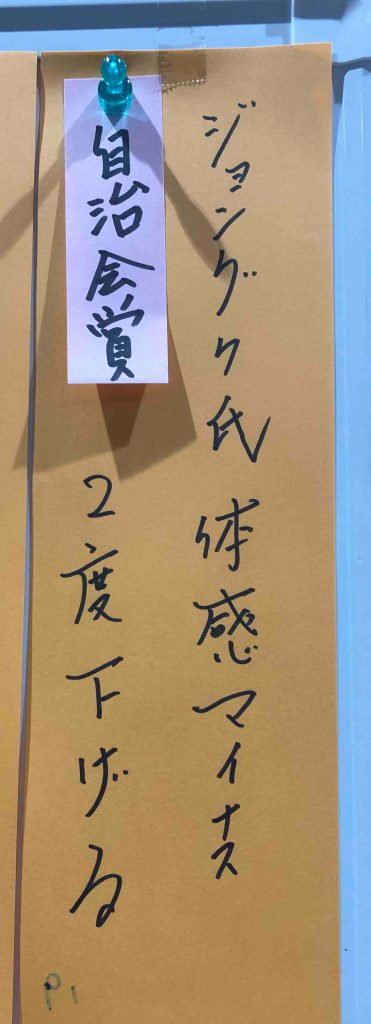 ジョングク氏 体感マイナス
2度下げる
自治会賞
P1